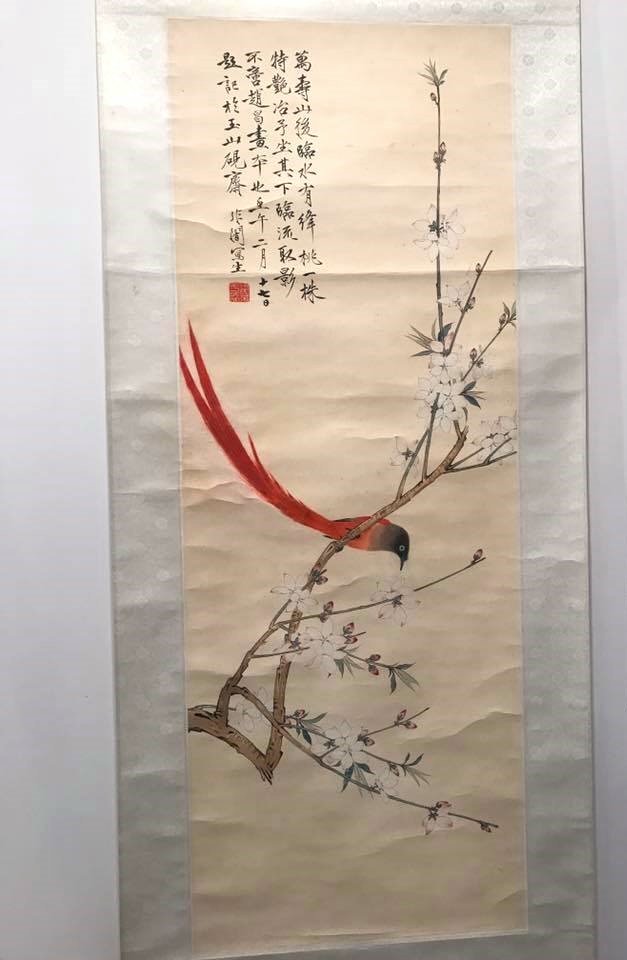 萬壽山後臨水有絳桃一株
特艷冶予坐其下臨流取影
不啻趙昌畫本也壬午二月十七日
題記於玉山硯齋 非闇寫生